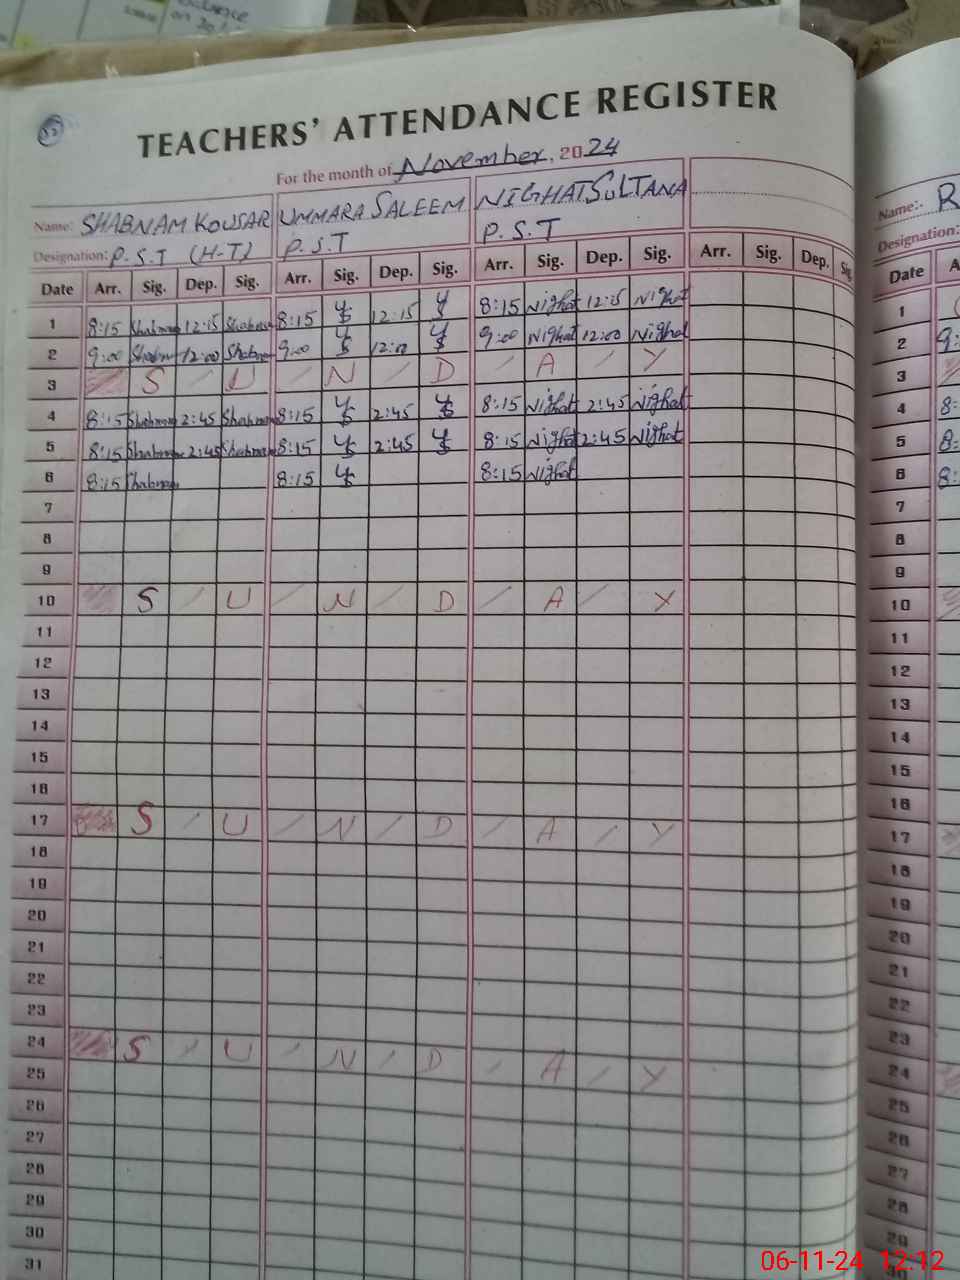 TEACHERS' ATTENDANCE REGISTER
For the month of November. 2024
Name: SHABNAM KOUSAR UMMARA SALEEM NIGHAT SULTANA
Designation: P.S.T (H-T) P.S.T P.S.T
Date Arr. Sig. Dep. Sig. Arr. Sig. Dep. Sig. Arr. Sig. Dep. Sig. Arr. Sig. Dep. Sig
1 8:15 Shabnam 12:15 Shabnam 8:15 12:15 8:15 Nighat 12:15 Nighat
2 9:00 Shabnam 12:00 Shabnam 9:00 12:00 9:00 Nighat 12:00 Nighat
3 S / U / N / D / A / Y
4 8:15 Shabnam 2:45 Shabnam 8:15 2:45 8:15 Nighat 2:45 Nighat
5 8:15 Shabnam 2:45 Shabnam 8:15 2:45 8:15 Nighat 2:45 Nighat
6 8:15 Shabnam 8:15 8:15 Nighat
7
8
9
10 S / U / N / D / A / Y
11
12
13
14
15
16
17 S / U / N / D / A / Y
18
19
20
21
22
23
24 S / U / N / D / A / Y
25
26
27
28
29
30
31
Name:- R
Designation:
Date A
1
2 9:
3
4 8:
5 8:
6 8:
7
8
9
10
11
12
13
14
15
16
17
18
19
20
21
22
23
24
25
26
27
28
29
30
06-11-24 12:12